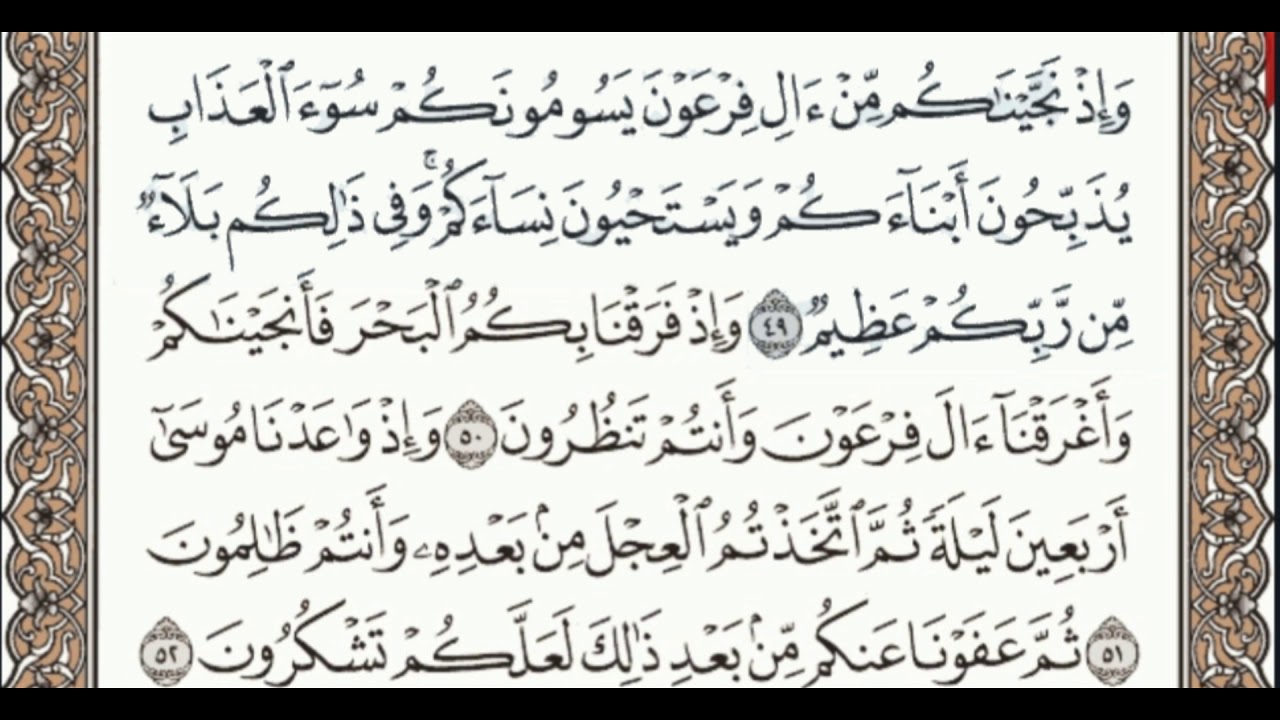 وَإِذْ نَجَّيْنَٰكُم مِّنْ ءَالِ فِرْعَوْنَ يَسُومُونَكُمْ سُوٓءَ ٱلْعَذَابِ
يُذَبِّحُونَ أَبْنَآءَكُمْ وَيَسْتَحْيُونَ نِسَآءَكُمْ ۚ وَفِى ذَٰلِكُم بَلَآءٌ
مِّن رَّبِّكُمْ عَظِيمٌ ٤٩ وَإِذْ فَرَقْنَا بِكُمُ ٱلْبَحْرَ فَأَنجَيْنَٰكُمْ
وَأَغْرَقْنَآ ءَالَ فِرْعَوْنَ وَأَنتُمْ تَنظُرُونَ ٥٠ وَإِذْ وَٰعَدْنَا مُوسَىٰٓ
أَرْبَعِينَ لَيْلَةً ثُمَّ ٱتَّخَذْتُمُ ٱلْعِجْلَ مِنۢ بَعْدِهِۦ وَأَنتُمْ ظَٰلِمُونَ
٥١ ثُمَّ عَفَوْنَا عَنكُم مِّنۢ بَعْدِ ذَٰلِكَ لَعَلَّكُمْ تَشْكُرُونَ ٥٢